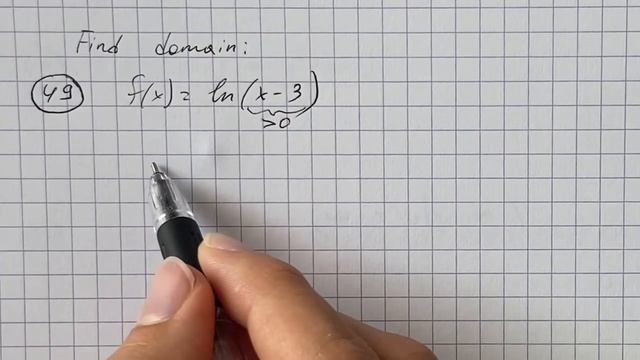 Find domain:
49 f(x) = ln(x - 3)
>0